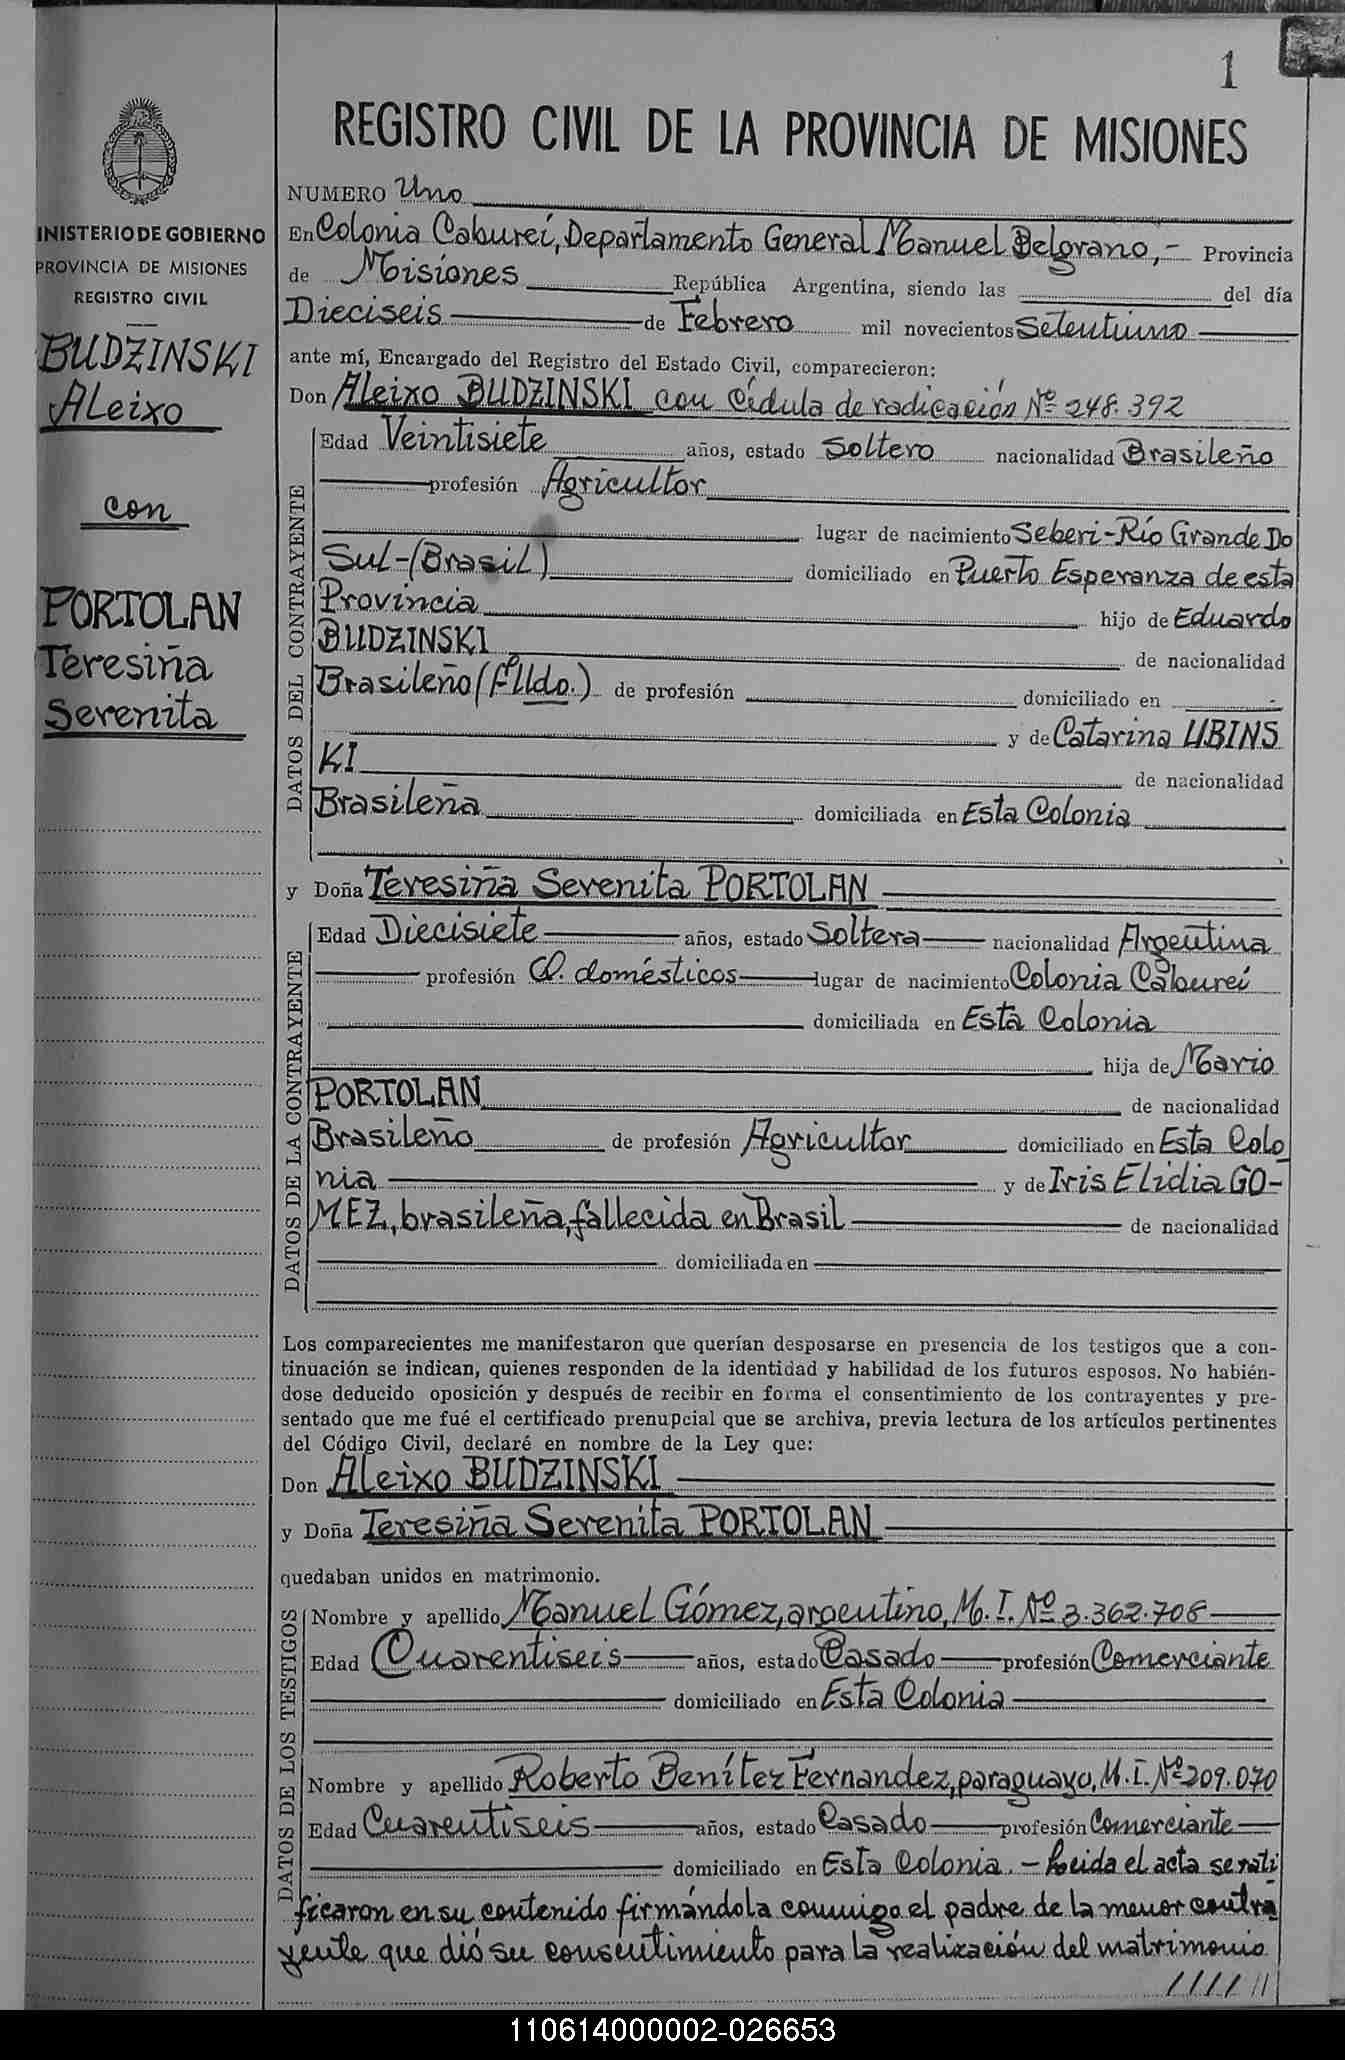 1
REGISTRO CIVIL DE LA PROVINCIA DE MISIONES
INISTERIO DE GOBIERNO
PROVINCIA DE MISIONES
REGISTRO CIVIL
BUDZINSKI
Aleixo
con
PORTOLAN
Teresiña
Serenita
NUMERO Uno
En Colonia Caburei, Departamento General Manuel Belgrano,- Provincia
de Misiones República Argentina, siendo las del día
Dieciseis de Febrero mil novecientos Setentiuno
ante mí, Encargado del Registro del Estado Civil, comparecieron:
Don Aleixo BUDZINSKI con Cédula de radicación Nº 248.392
DATOS DEL CONTRAYENTE
Edad Veintisiete años, estado Soltero nacionalidad Brasileño
profesión Agricultor
lugar de nacimiento Seberi-Río Grande Do
Sul-(Brasil) domiciliado en Puerto Esperanza de esta
Provincia hijo de Eduardo
BUDZINSKI de nacionalidad
Brasileño (Flldo.) de profesión domiciliado en -
y de Catarina UBINS
KI de nacionalidad
Brasileña domiciliada en Esta Colonia
y Doña Teresiña Serenita PORTOLAN
DATOS DE LA CONTRAYENTE
Edad Diecisiete años, estado Soltera nacionalidad Argentina
profesión Q. domésticos lugar de nacimiento Colonia Caburei
domiciliada en Esta Colonia
hija de Mario
PORTOLAN de nacionalidad
Brasileño de profesión Agricultor domiciliado en Esta Colo
nia y de Iris Elidia GO-
MEZ, brasileña, fallecida en Brasil de nacionalidad
domiciliada en
Los comparecientes me manifestaron que querían desposarse en presencia de los testigos que a con-
tinuación se indican, quienes responden de la identidad y habilidad de los futuros esposos. No habién-
dose deducido oposición y después de recibir en forma el consentimiento de los contrayentes y pre-
sentado que me fué el certificado prenupcial que se archiva, previa lectura de los artículos pertinentes
del Código Civil, declaré en nombre de la Ley que:
Don Aleixo BUDZINSKI
y Doña Teresiña Serenita PORTOLAN
quedaban unidos en matrimonio.
DATOS DE LOS TESTIGOS
Nombre y apellido Manuel Gómez, argentino, M.I. Nº 3.362.708
Edad Cuarentiseis años, estado Casado profesión Comerciante
domiciliado en Esta Colonia
Nombre y apellido Roberto Benítez Fernandez, paraguayo, M.I. Nº 209.070
Edad Cuarentiseis años, estado Casado profesión Comerciante
domiciliado en Esta Colonia.- Leida el acta se rati
ficaron en su contenido firmándola conmigo el padre de la menor contra
yente que dió su consentimiento para la realización del matrimonio
//////
110614000002-026653